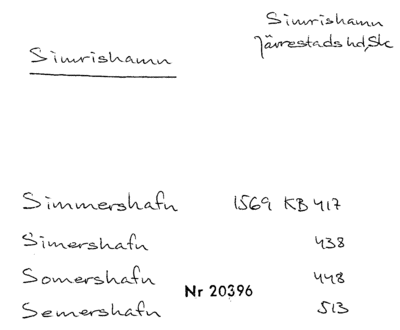 Simrishamn
Järrestads hd, Sk
Simrishamn
Simmershafn 1569 KB 417
Simershafn 438
Somershafn 448
Semershafn 513
Nr 20396